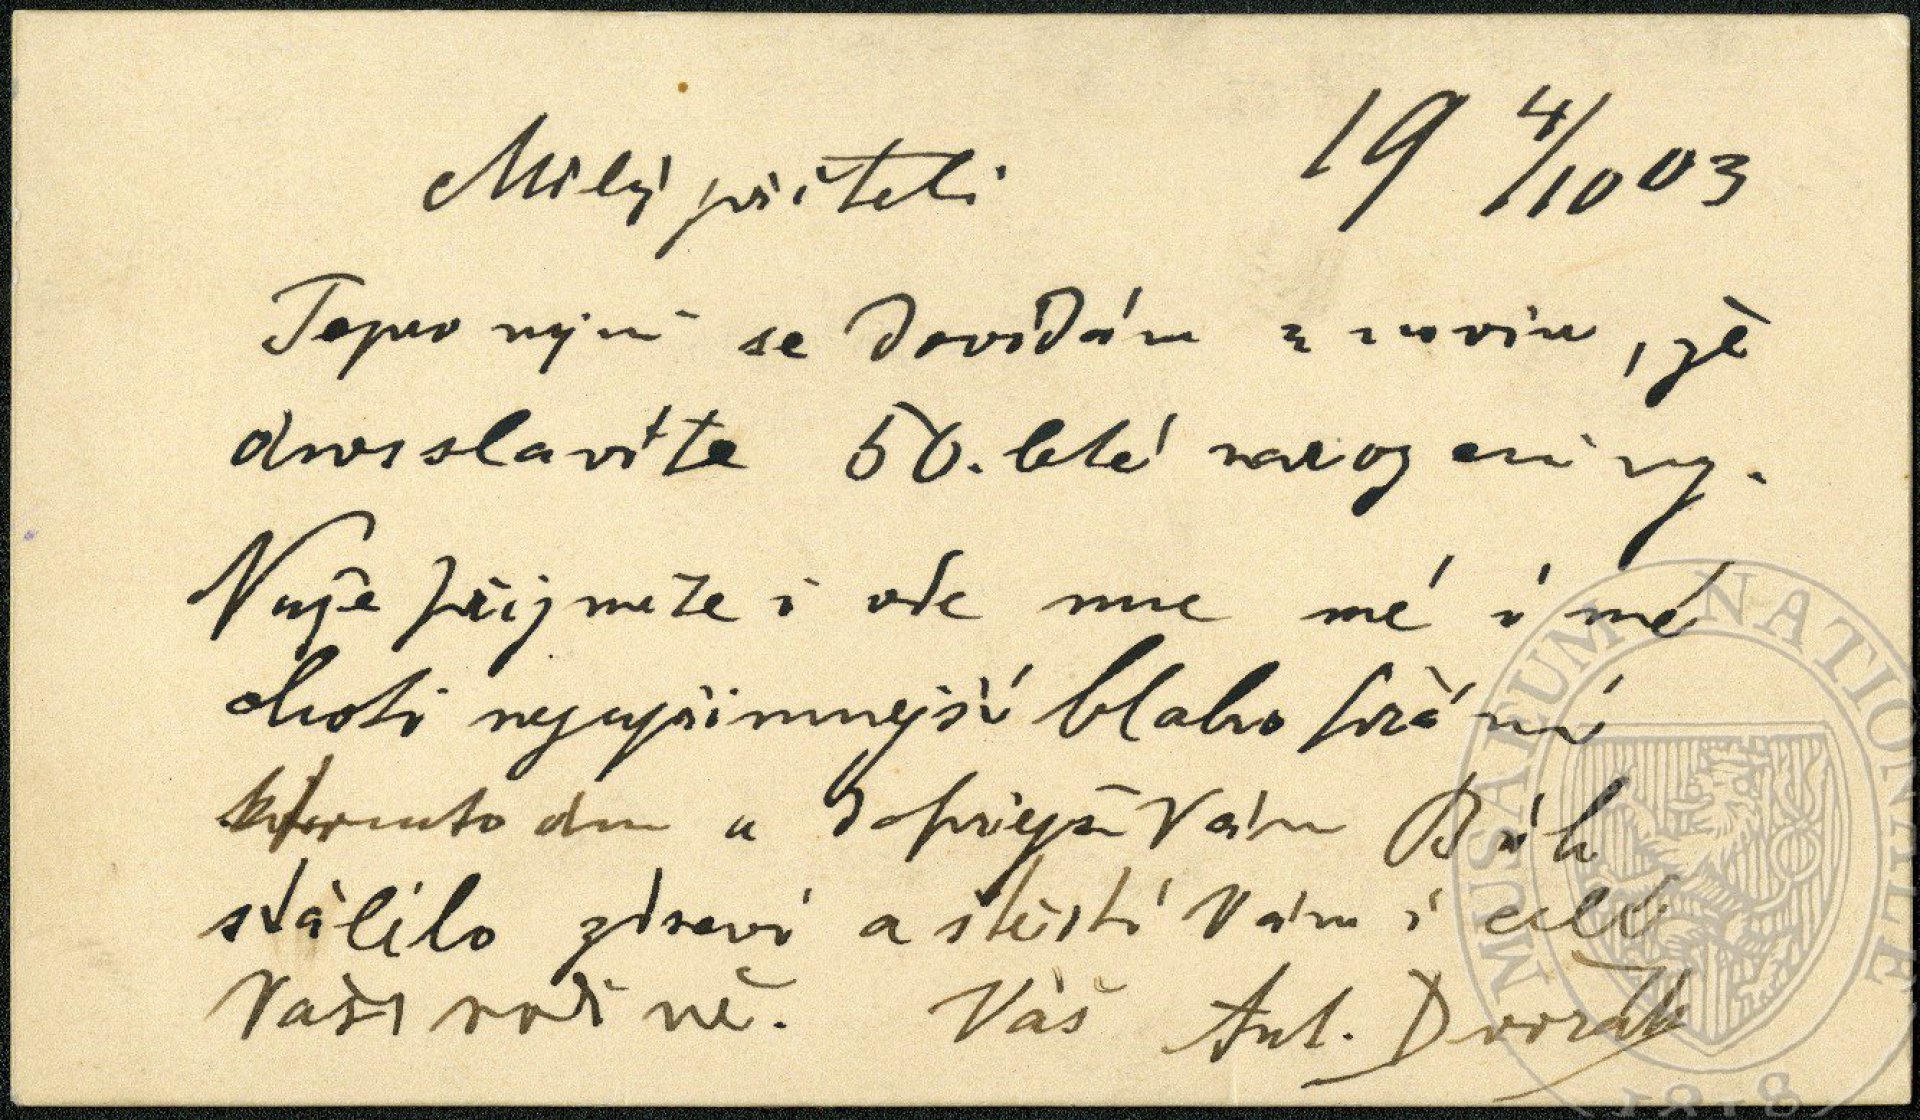 Milý příteli 19 4/10 03
Teprv nyní se dovídám z novin, že
dnes slavíte 50. leté narozeniny.
Nuže přijmete i ode mne mé i mé
choti nejupřimnejší blaho přání
k tomuto dnu a dopřejž Vám Bůh
stálilo zdraví a štěstí Vám i celé
Vaší rodině. Váš Ant. Dvořák
MUSAEUM NATIONALE
1818